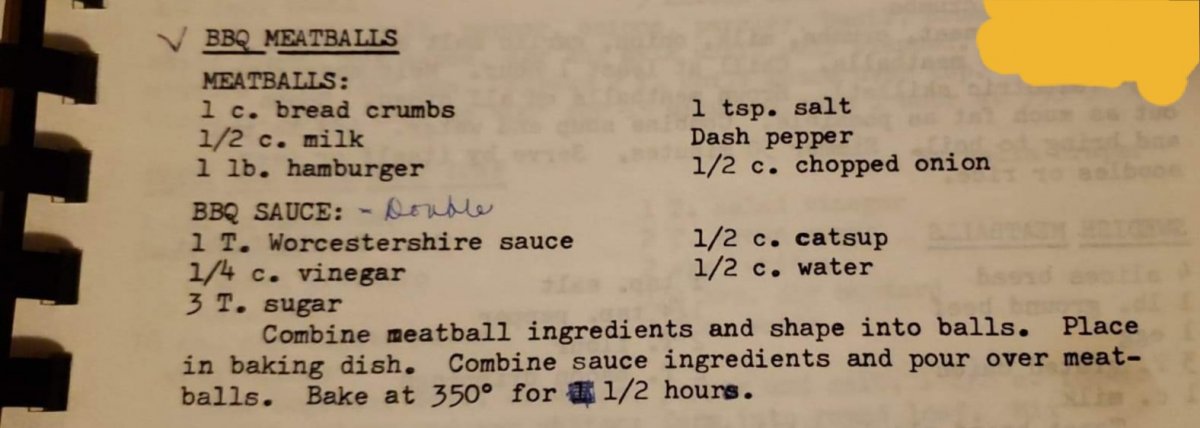 ✓ BBQ MEATBALLS
MEATBALLS:
1 c. bread crumbs 1 tsp. salt
1/2 c. milk Dash pepper
1 lb. hamburger 1/2 c. chopped onion
BBQ SAUCE: - Double
1 T. Worcestershire sauce 1/2 c. catsup
1/4 c. vinegar 1/2 c. water
3 T. sugar
Combine meatball ingredients and shape into balls. Place
in baking dish. Combine sauce ingredients and pour over meat-
balls. Bake at 350° for 1/2 hours.